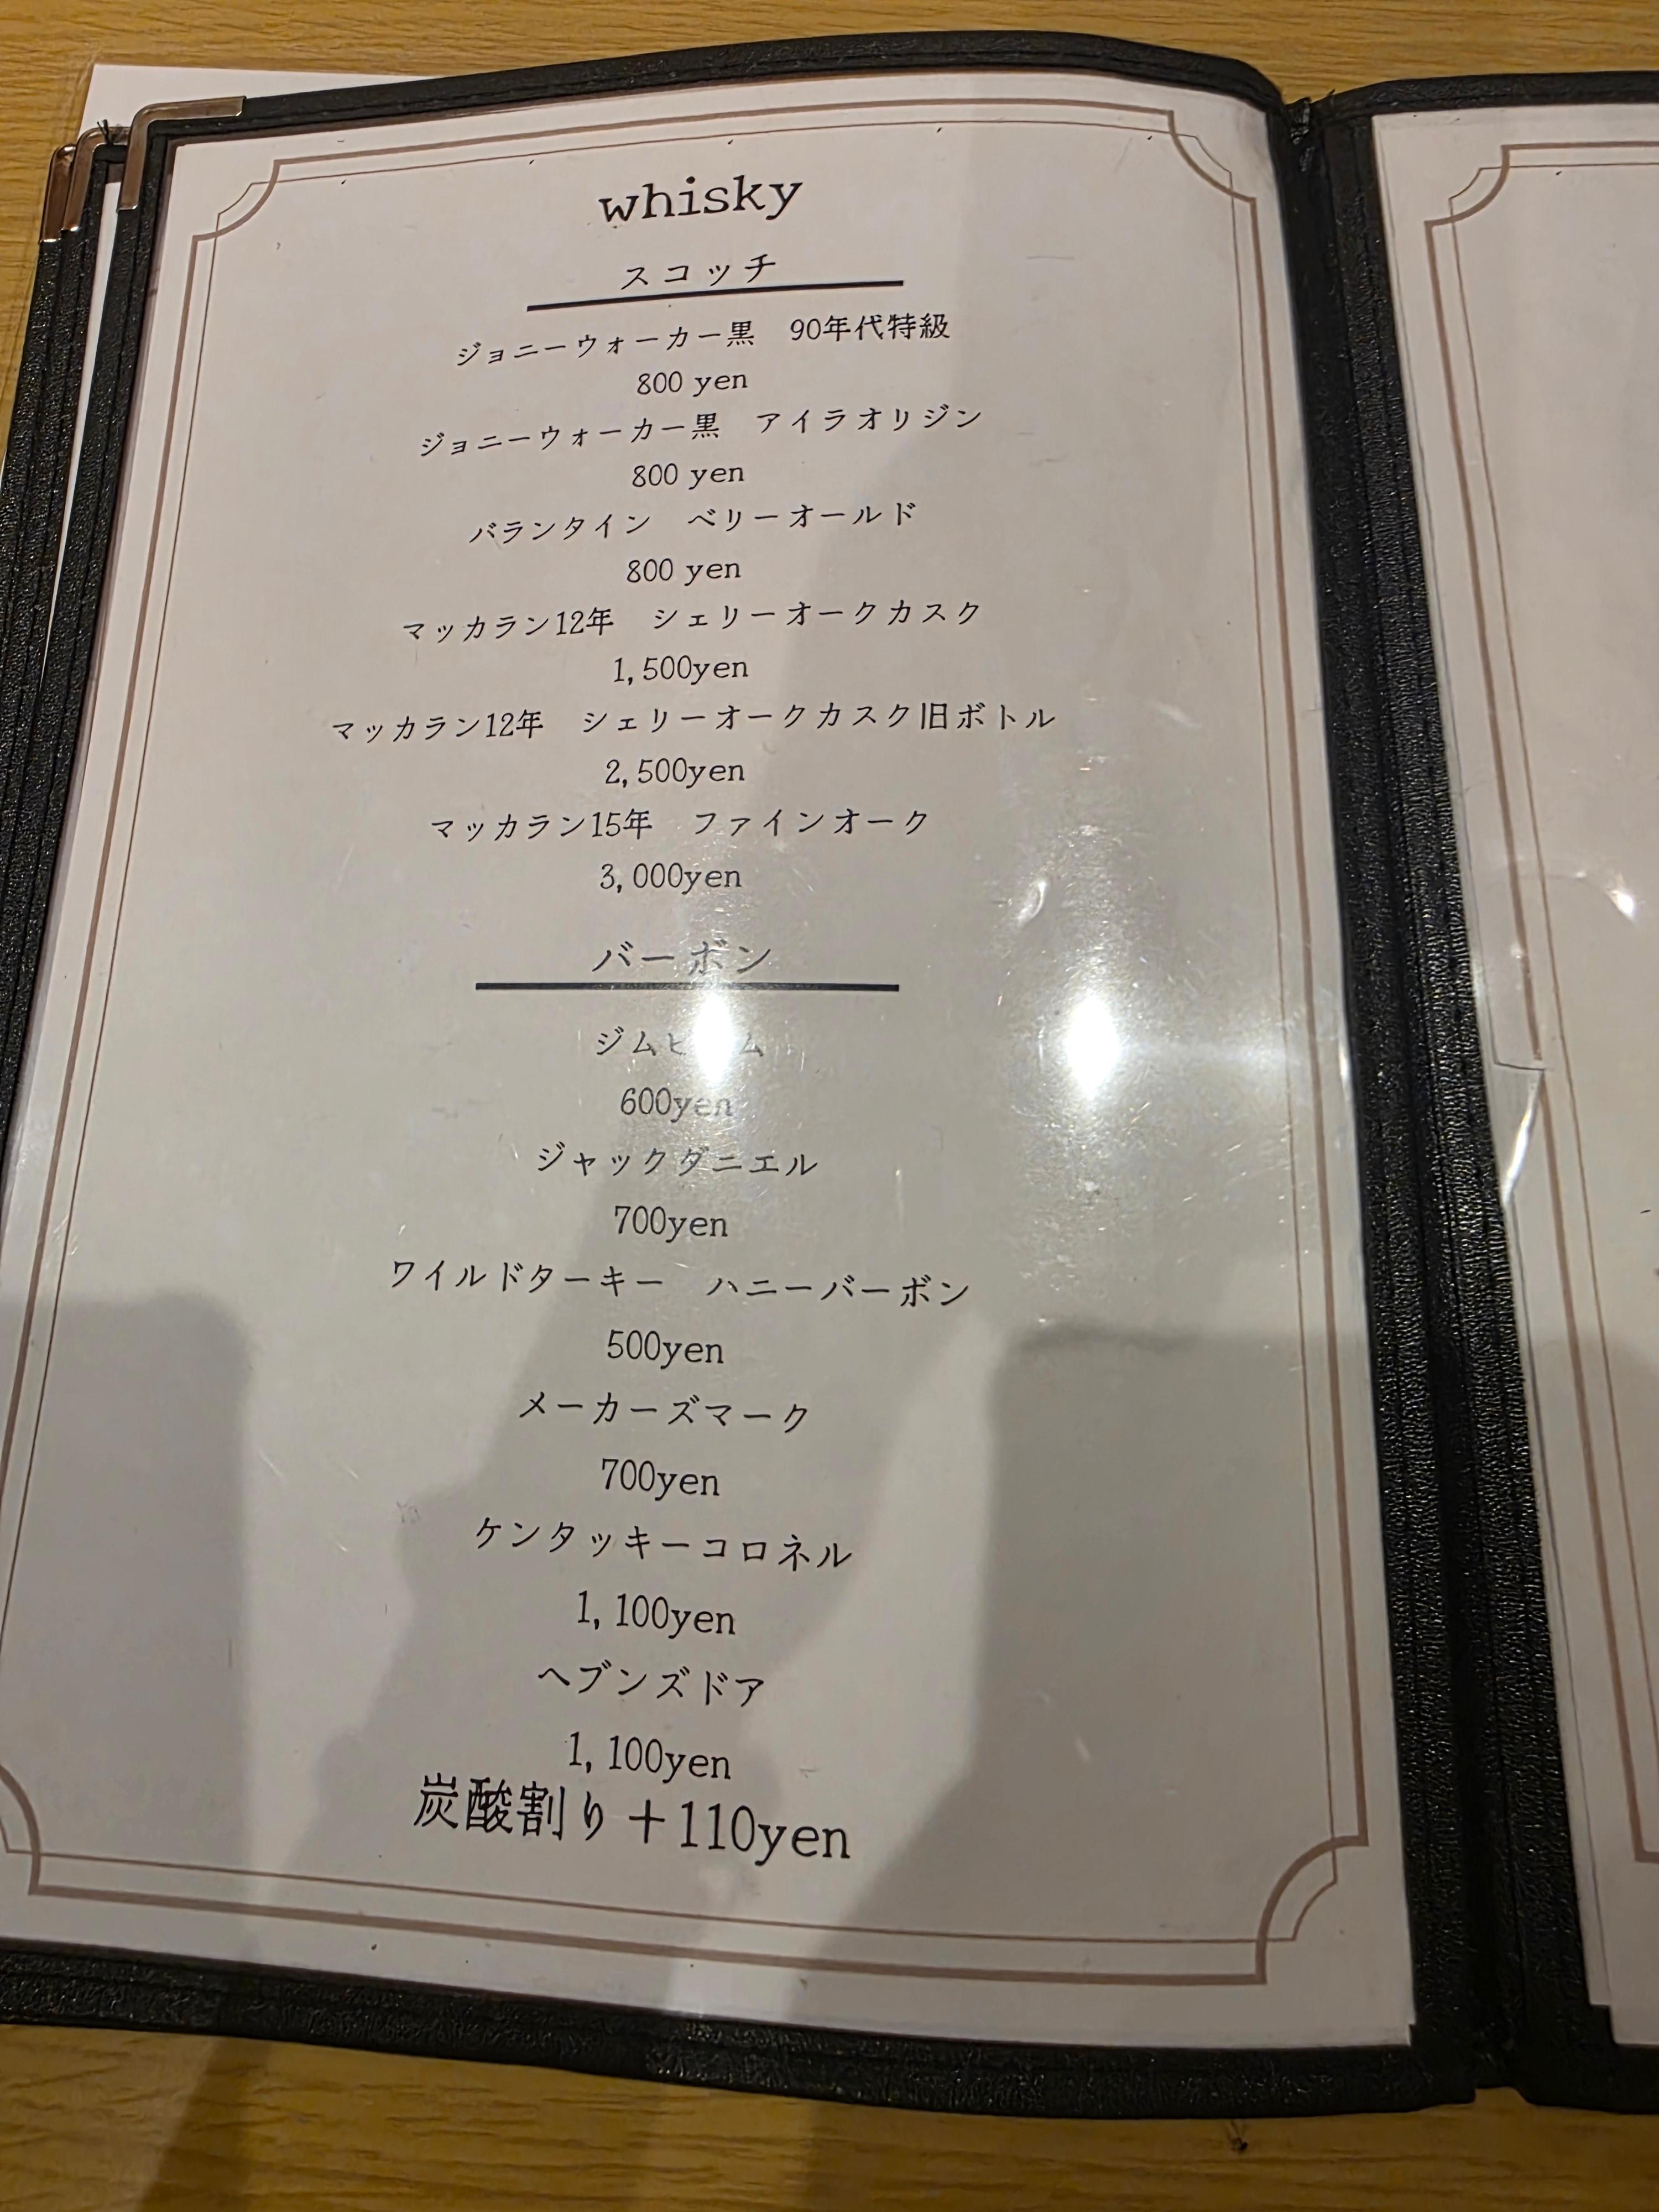 whisky
スコッチ
ジョニーウォーカー黒　90年代特級
800 yen
ジョニーウォーカー黒　アイラオリジン
800 yen
バランタイン　ベリーオールド
800 yen
マッカラン12年　シェリーオークカスク
1,500yen
マッカラン12年　シェリーオークカスク旧ボトル
2,500yen
マッカラン15年　ファインオーク
3,000yen
バーボン
ジムビーム
600yen
ジャックダニエル
700yen
ワイルドターキー　ハニーバーボン
500yen
メーカーズマーク
700yen
ケンタッキーコロネル
1,100yen
ヘブンズドア
1,100yen
炭酸割り＋110yen